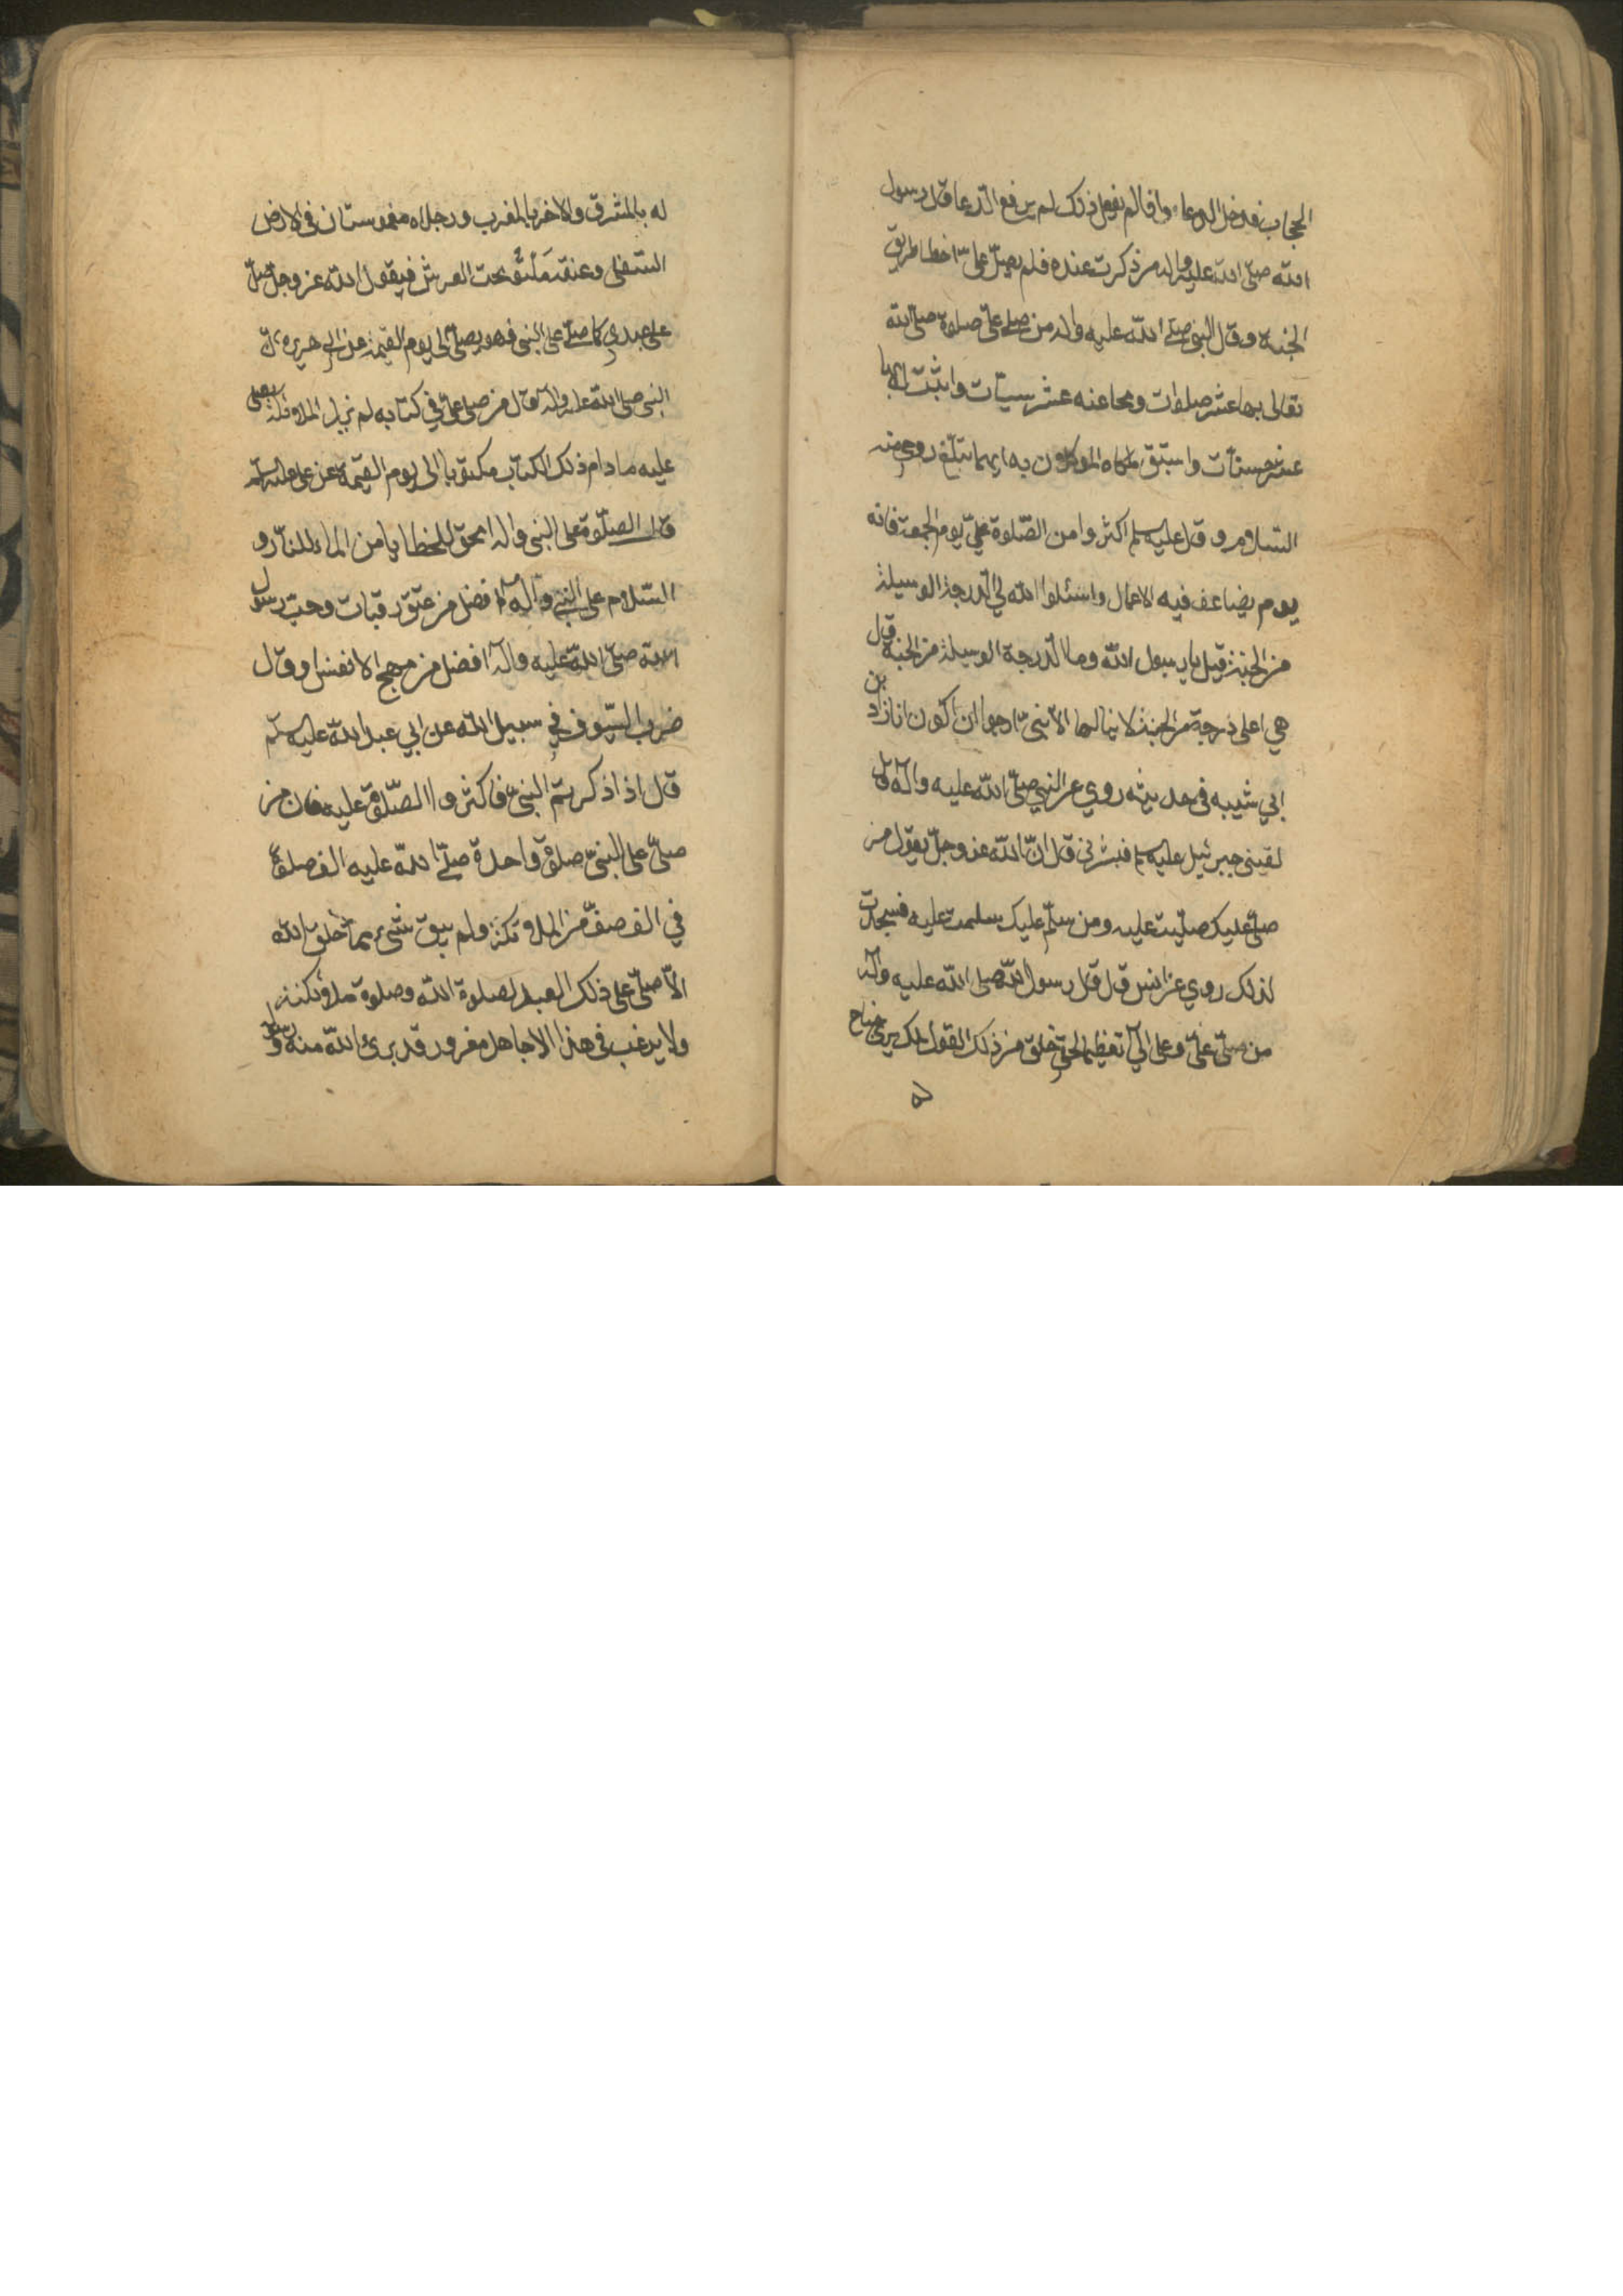 الحجاب فدخل الدعاء واذا لم يفعل ذلك لم يرفع الدعا قال رسول
الله صلى الله عليه واله من ذكرت عنده فلم يصل على اخطا طريق
الجنة وقال النبي صلى الله عليه واله من صلى على صلوة صلى الله
تعالى بها عشر صلوات ومحا عنه عشر سيئات واثبت له بها
عشر حسنات واستبق ملكاه الموكلون به ايهما يبلغ روحي منه
السلام وقال عليه السلم اكثروا من الصلوة علي يوم الجمعة فانه
يوم يضاعف فيه الاعمال واسئلوا الله لي الدرجة الوسيلة
من الجنة قيل يا رسول الله وما الدرجة الوسيلة من الجنة قال
هي اعلى درجة من الجنة لا ينالها الا نبي ارجوا ان اكون انا زاد بن
ابي شيبه في حديثه روي عن النبي صلى الله عليه واله قال
لقيني جبرئيل عليه السلم فبشرني قال ان الله عز وجل يقول من
صلى عليك صليت عليه ومن سلم عليك سلمت عليه فسجدت
لذلك روي عن انس قال قال رسول الله صلى الله عليه واله
من صلى علي وعلى الي تعظيما لحقي خلق من ذلك القول ملك يرى جناح
له
له بالمشرق والاخر بالمغرب ورجلاه مغموستان في الارض
السفلى وعنقه ملتو تحت العرش فيقول الله عز وجل صل
على عبدي كما صلى على النبي فهو يصلى الى يوم القيمة عن ابي هريرة ان
النبي صلى الله عليه واله قال من صلى علي في كتابه لم تزل الملائكة يصلى
عليه ما دام ذلك الكتاب مكتوبا الى يوم القيمة عن علي عليه السلم
قال الصلوة على النبي واله امحق للخطايا من الماء للنار و
السلام على النبي واله افضل من عتق رقبات وحب رسول
الله صلى الله عليه واله افضل من مهج الانفس او قال
ضرب السيوف في سبيل الله عن ابي عبد الله عليه السلم
قال اذا ذكرتم النبي فاكثروا الصلوة عليه فان من
صلى على النبي صلوة واحدة صلى الله عليه الف صلوة
في الف صف من الملائكة ولم يبق شيء مما خلق الله
الا صلى على ذلك العبد لصلوة الله وصلوة ملائكته
ولا يرغب في هذا الا جاهل مغرور قد برئ الله منه ورسوله